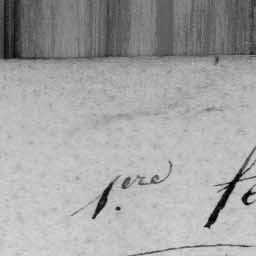 1.ere fe